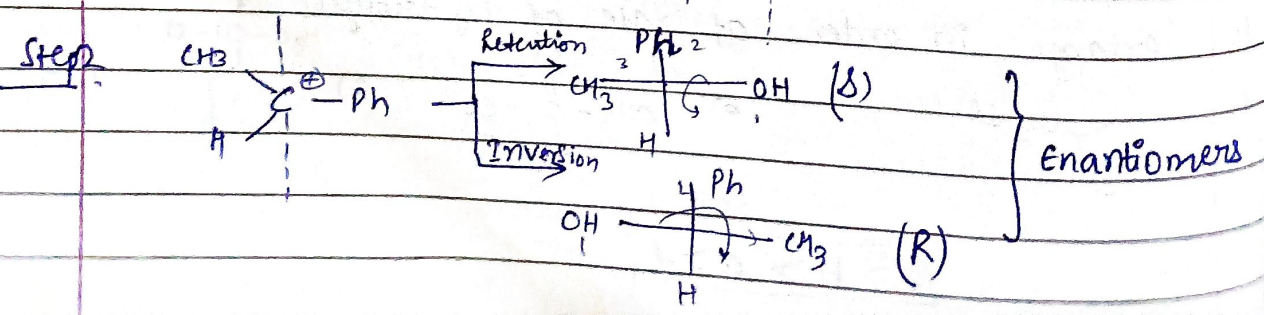 Step 2
CH3
H
C ⊕ — Ph
Retention
Ph 2
3
CH3
OH
1
H
(S)
Inversion
4 Ph
OH
1
CH3
H
(R)
Enantiomers